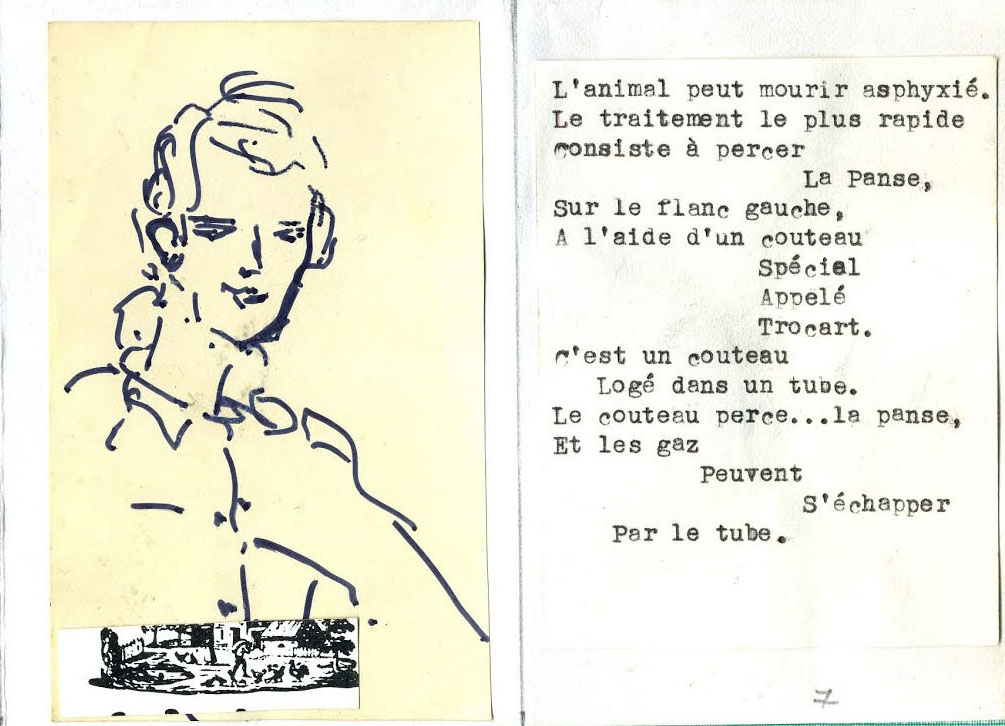 L'animal peut mourir asphyxié.
Le traitement le plus rapide
consiste à percer
La Panse,
Sur le flanc gauche,
A l'aide d'un couteau
Spécial
Appelé
Trocart.
c'est un couteau
Logé dans un tube.
Le couteau perce...la panse,
Et les gaz
Peuvent
S'échapper
Par le tube.
7